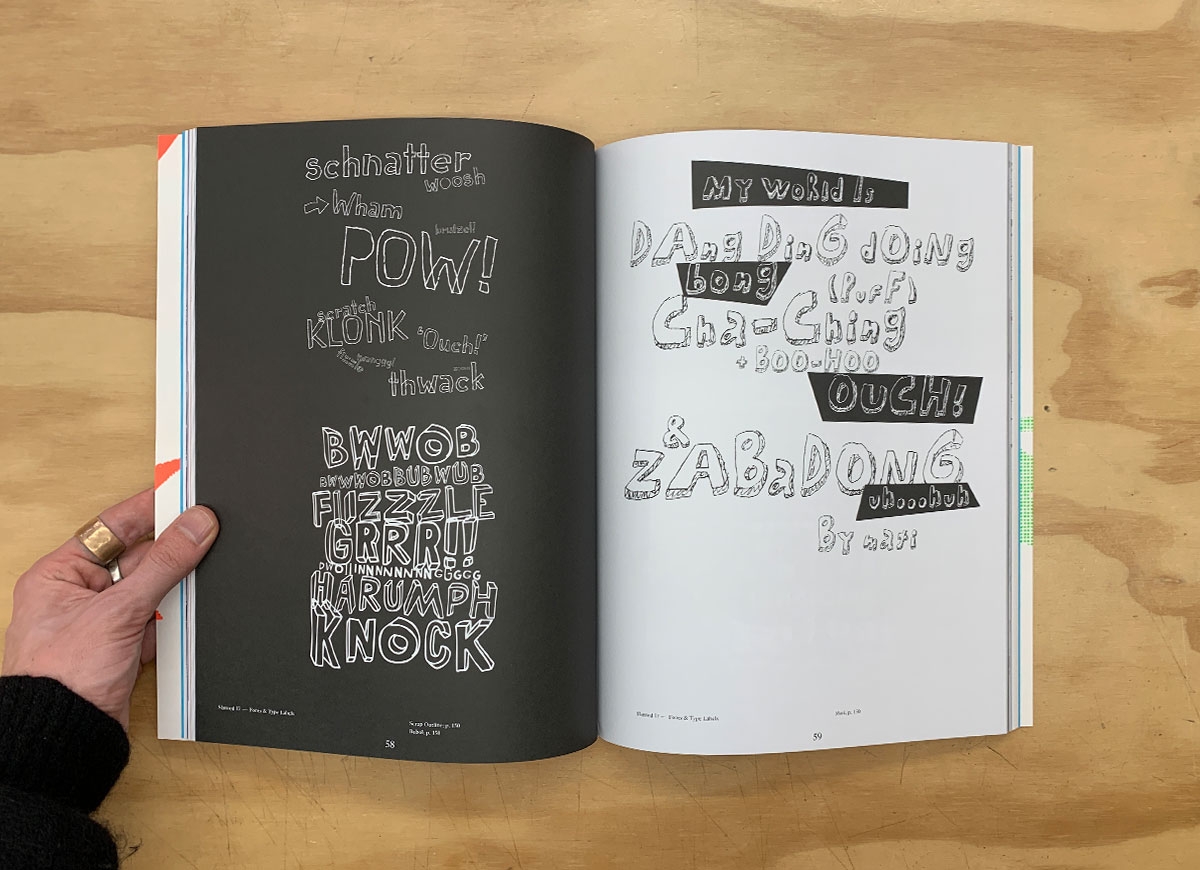 schnatter
woosh
Wham
brutzel!
POW!
scratch
KLONK
"Ouch!"
thwack
BWWOB
BWWWOBBUBWUB
FIIZZZZLE
GRRR!!
HARUMPH
KNOCK
Slanted 17 — Fonts & Type Labels
Scrap Outline, p. 150
58
My WoRld Is
DAng DinG dOiNg
bong
(PuFF)
Cha-Ching
+ BOO-HOO
OUCH!
&
ZABaDONG
uh...huh
By mari
Slanted 17 — Fonts & Type Labels
59